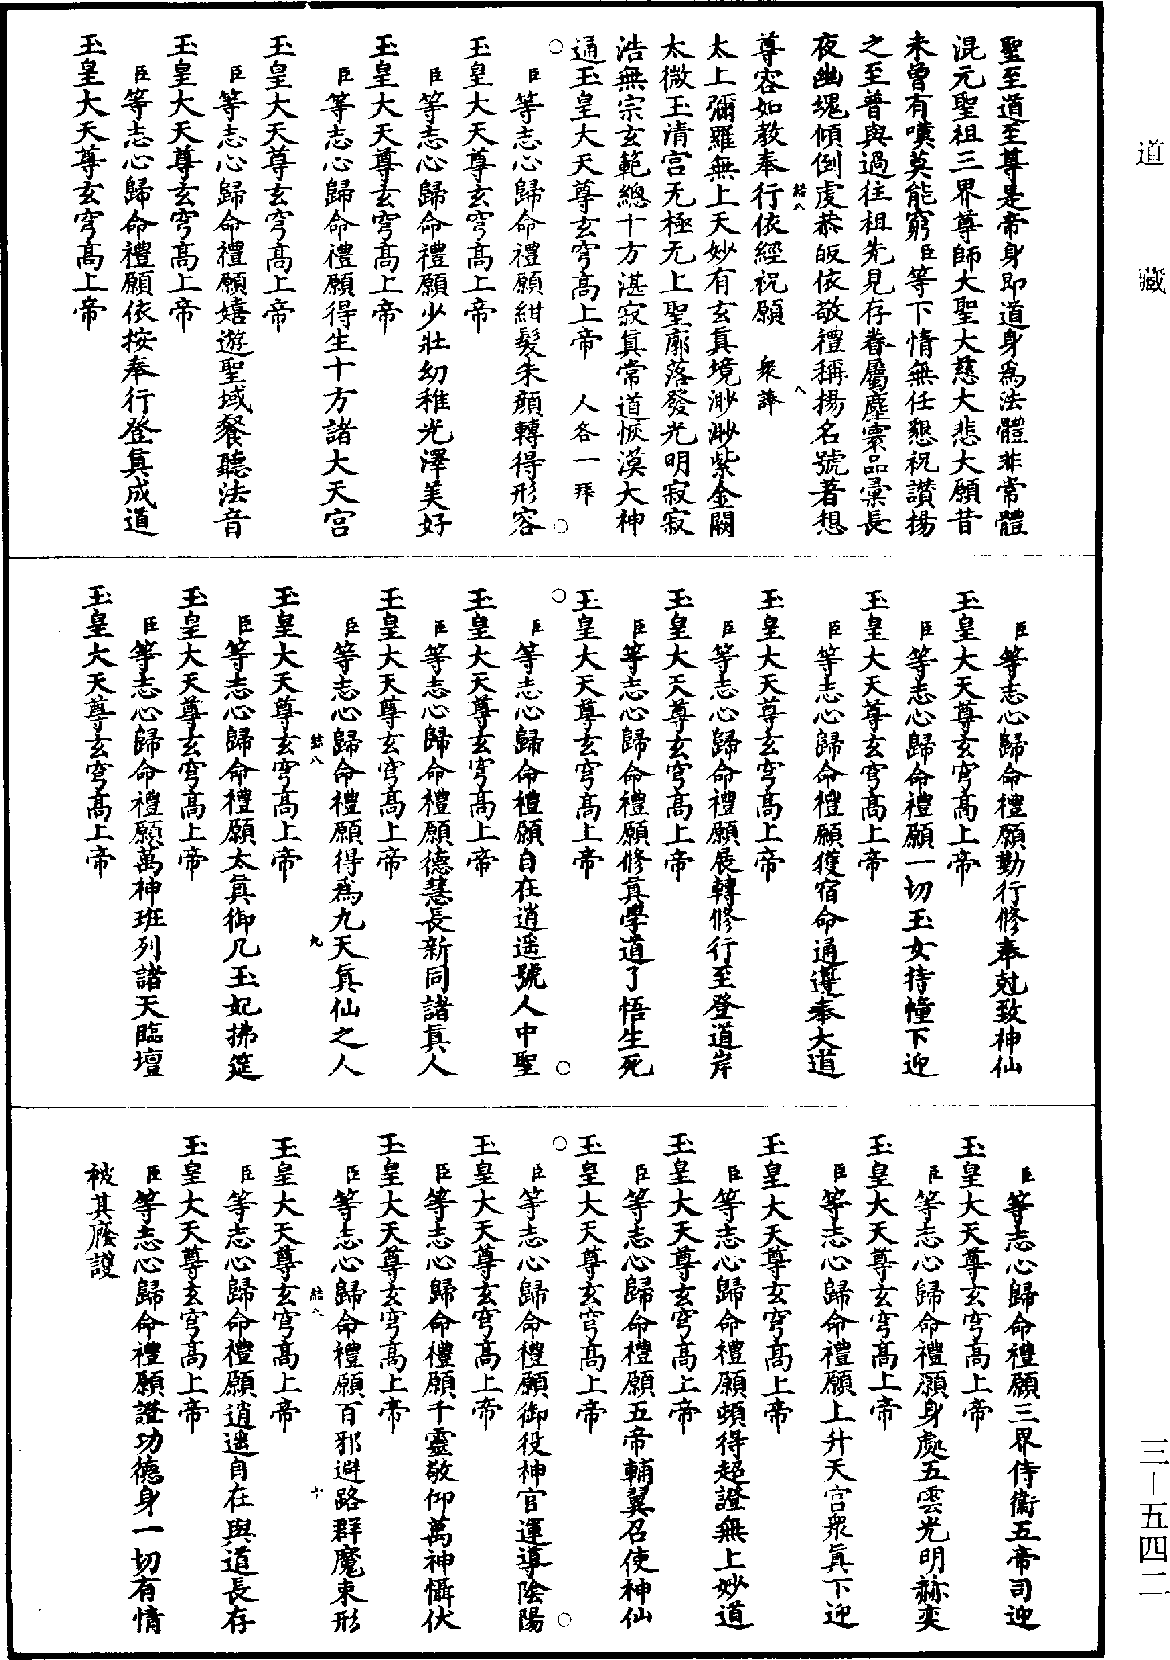 聖至道至尊是帝身即道身為法體非常體
混元聖祖三界尊師大聖大慈大悲大願昔
未曾有嘆莫能窮臣等下情無任懇祝讚揚
之至普與過往祖先見存眷屬塵寰品彙長
夜幽魂傾倒虔恭皈依敬禮稱揚名號著想
尊容如教奉行依經祝願 眾誦
太上彌羅無上天妙有玄真境渺渺紫金闕
太微玉清宮无極无上聖廓落發光明寂寂
浩無宗玄範總十方湛寂真常道恢漠大神
通玉皇大天尊玄穹高上帝 人各一拜
臣等志心歸命禮願紺髮朱顏轉得形容
玉皇大天尊玄穹高上帝
臣等志心歸命禮願少壯幼稚光澤美好
玉皇大天尊玄穹高上帝
臣等志心歸命禮願得生十方諸大天宮
玉皇大天尊玄穹高上帝
臣等志心歸命禮願嬉遊聖域餐聽法音
玉皇大天尊玄穹高上帝
臣等志心歸命禮願依按奉行登真成道
玉皇大天尊玄穹高上帝
臣等志心歸命禮願勤行修奉尅致神仙
玉皇大天尊玄穹高上帝
臣等志心歸命禮願一切玉女持幢下迎
玉皇大天尊玄穹高上帝
臣等志心歸命禮願獲宿命通遵奉大道
玉皇大天尊玄穹高上帝
臣等志心歸命禮願展轉修行至登道岸
玉皇大天尊玄穹高上帝
臣等志心歸命禮願修真學道了悟生死
玉皇大天尊玄穹高上帝
臣等志心歸命禮願自在逍遥號人中聖
玉皇大天尊玄穹高上帝
臣等志心歸命禮願德慧長新同諸真人
玉皇大天尊玄穹高上帝
臣等志心歸命禮願得為九天真仙之人
玉皇大天尊玄穹高上帝
臣等志心歸命禮願太真御几玉妃拂筵
玉皇大天尊玄穹高上帝
臣等志心歸命禮願萬神班列諸天臨壇
玉皇大天尊玄穹高上帝
臣等志心歸命禮願三界侍衛五帝司迎
玉皇大天尊玄穹高上帝
臣等志心歸命禮願身處五雲光明赫奕
玉皇大天尊玄穹高上帝
臣等志心歸命禮願上升天宮眾真下迎
玉皇大天尊玄穹高上帝
臣等志心歸命禮願頓得超證無上妙道
玉皇大天尊玄穹高上帝
臣等志心歸命禮願五帝輔翼召使神仙
玉皇大天尊玄穹高上帝
臣等志心歸命禮願御役神官運導陰陽
玉皇大天尊玄穹高上帝
臣等志心歸命禮願千靈敬仰萬神懾伏
玉皇大天尊玄穹高上帝
臣等志心歸命禮願百邪避路群魔束形
玉皇大天尊玄穹高上帝
臣等志心歸命禮願逍遥自在與道長存
玉皇大天尊玄穹高上帝
臣等志心歸命禮願證功德身一切有情
被其廕護
道藏
三—五四二
八
九
十